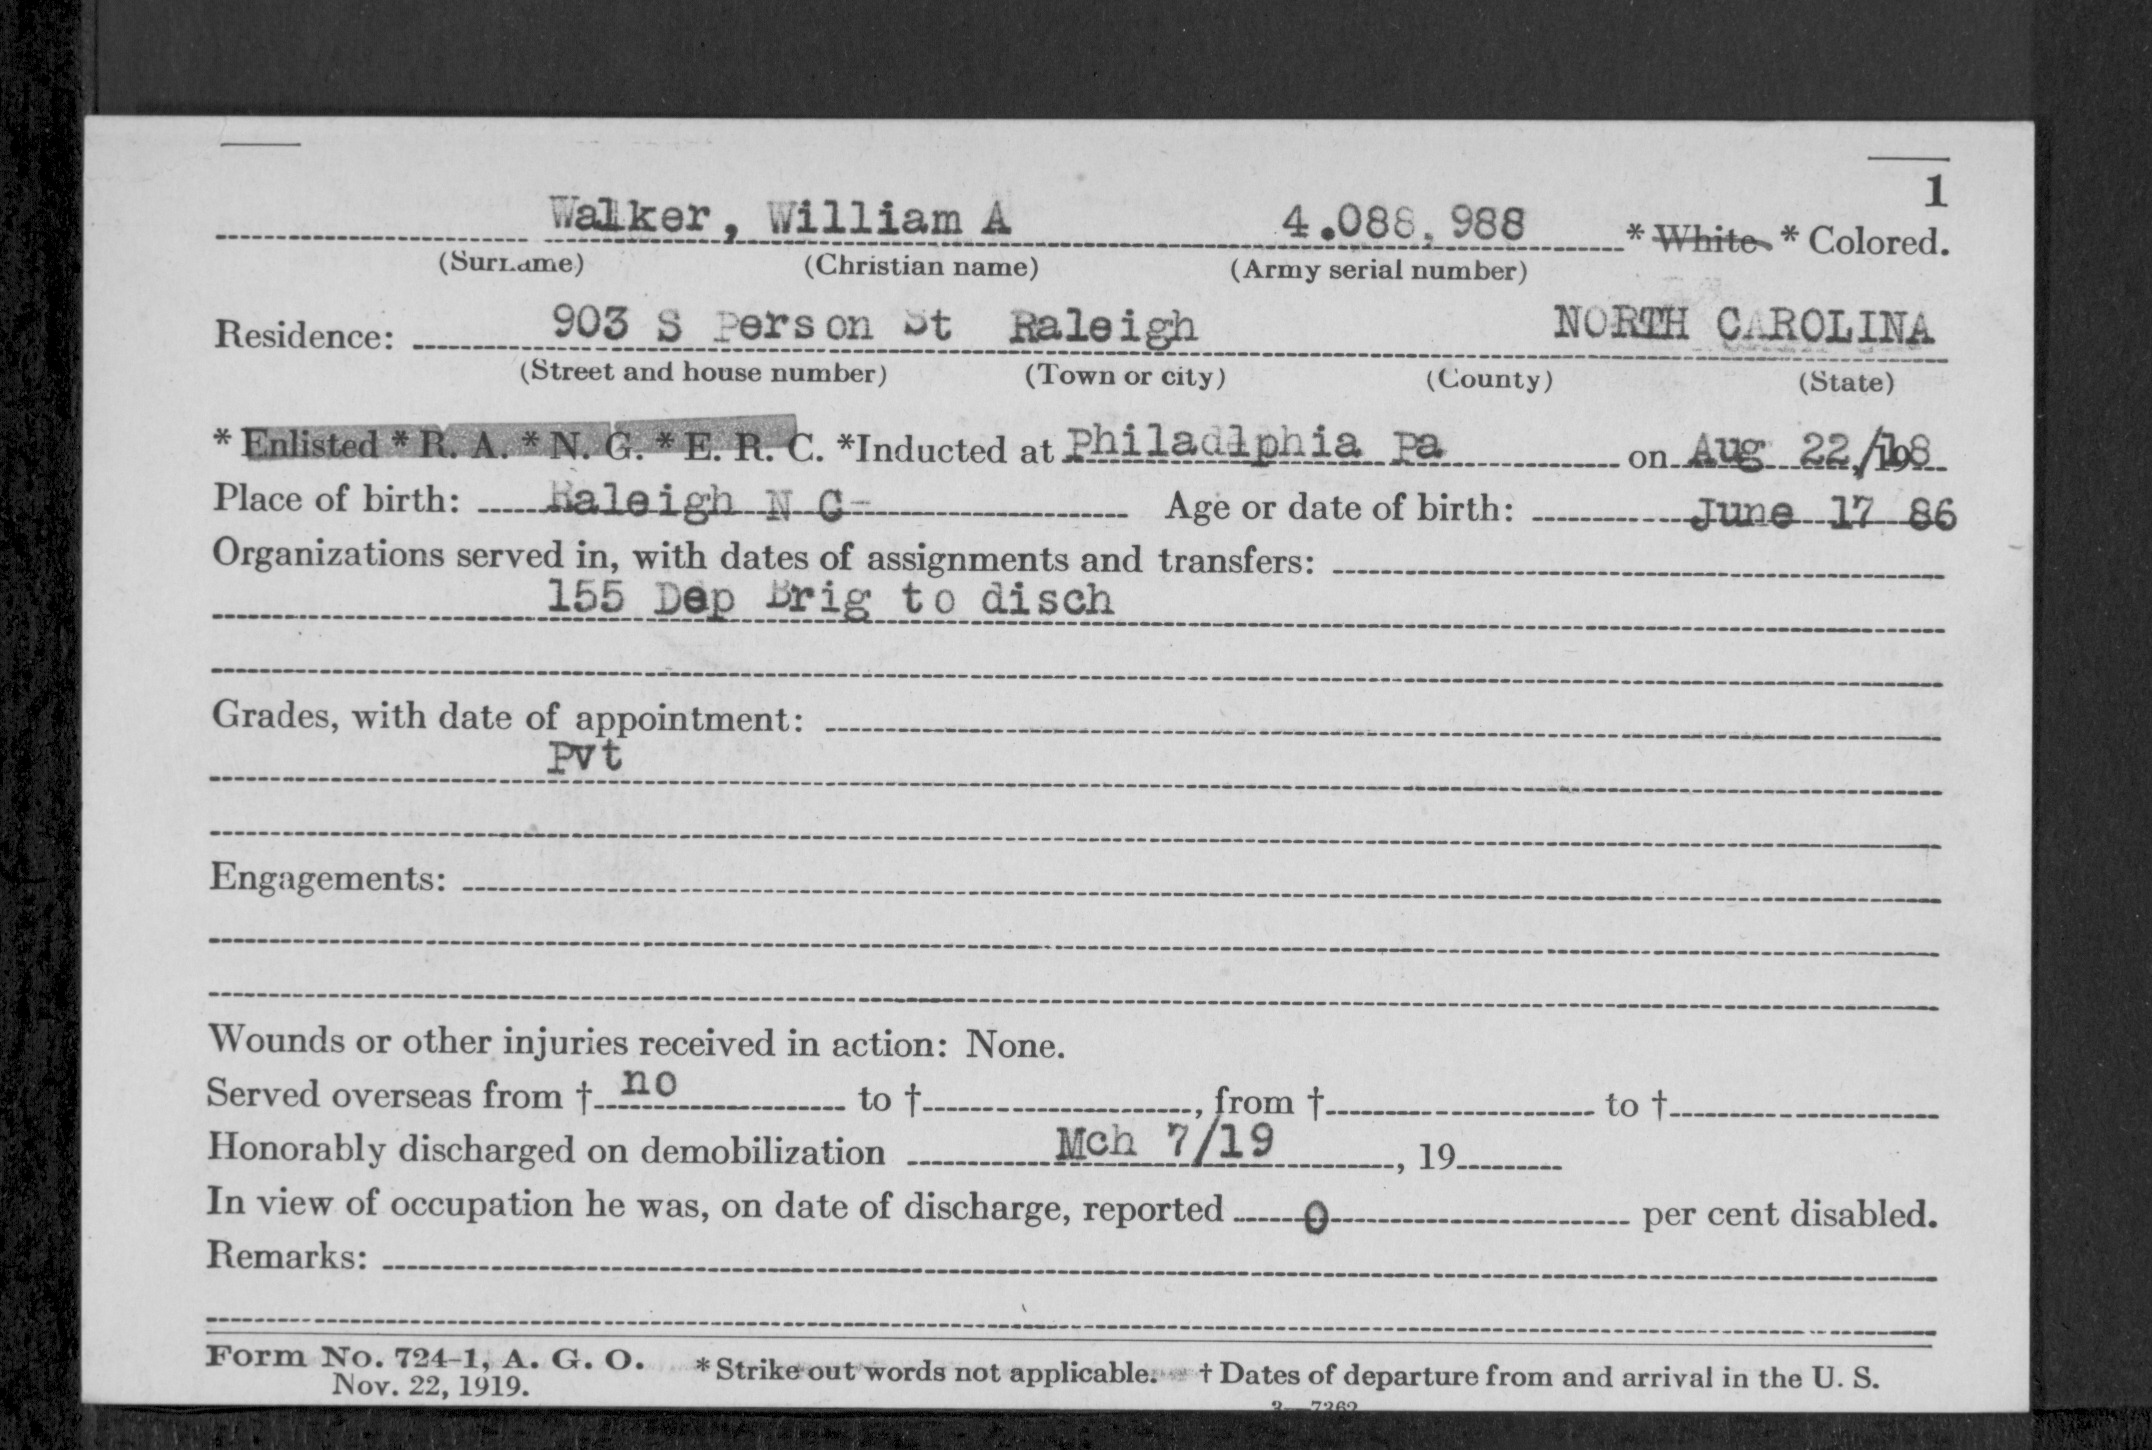 1
Walker, William A 4.088.988 * White * Colored.
(Surname) (Christian name) (Army serial number)
Residence: 903 S Person St Raleigh NORTH CAROLINA
(Street and house number) (Town or city) (County) (State)
* Enlisted * R. A. * N. G. * E. R. C. *Inducted at Philadlphia Pa on Aug 22/18
Place of birth: Raleigh N C- Age or date of birth: June 17 86
Organizations served in, with dates of assignments and transfers:
155 Dep Brig to disch
Grades, with date of appointment:
Pvt
Engagements:
Wounds or other injuries received in action: None.
Served overseas from † no to †, from † to †
Honorably discharged on demobilization Mch 7/19, 19
In view of occupation he was, on date of discharge, reported 0 per cent disabled.
Remarks:
Form No. 724-1, A. G. O. * Strike out words not applicable. † Dates of departure from and arrival in the U. S.
Nov. 22, 1919.
3—7362